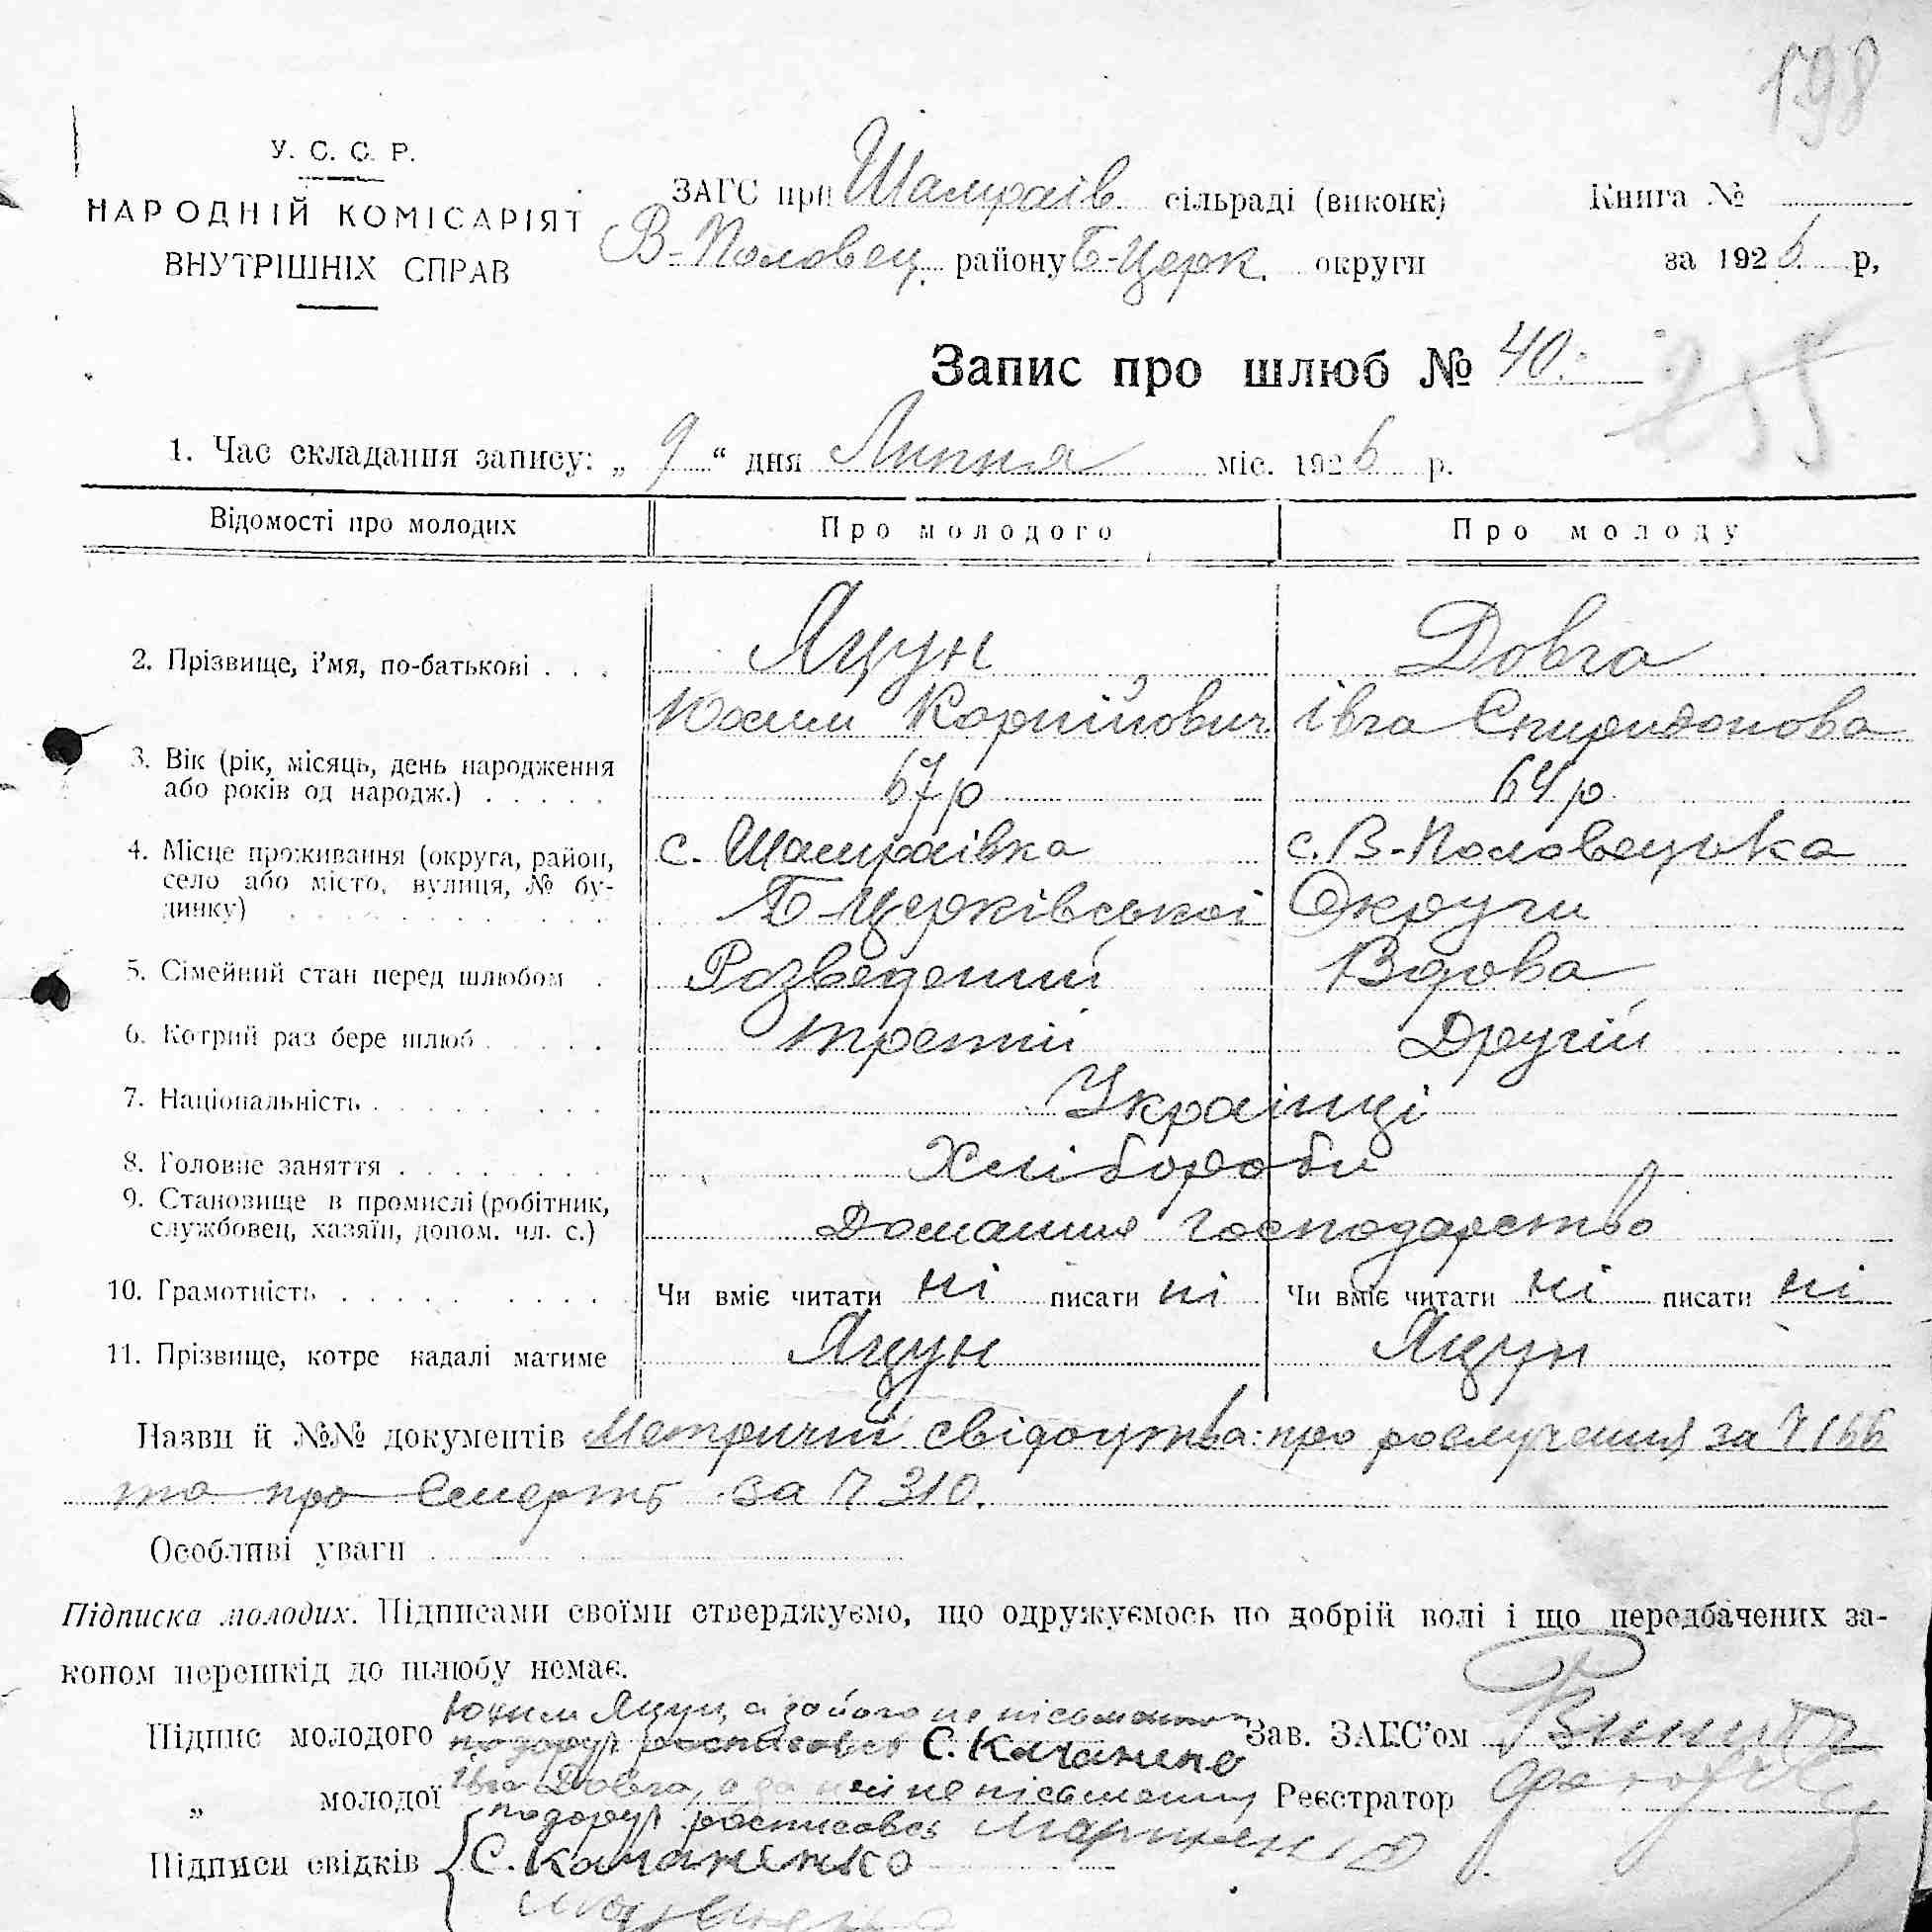 198
У. С. С. Р.
НАРОДНІЙ КОМІСАРІЯТ
ВНУТРІШНІХ СПРАВ
ЗАГС при Шамраїв. сільраді (виконк)
В-Половец. району Б-Церк. округи
Книга №
за 1926 р,
Запис про шлюб № 40.
255
1. Час складання запису: „ 9 “ дня Липня міс. 1926 р.
Відомості про молодих Про молодого Про молоду
2. Прізвище, і'мя, по-батькові . . . Яцун Довга
Юхим Корнійович Івга Спиридонова
3. Вік (рік, місяць, день народження
або років од народж.) . . . . . 67 р 64 р.
4. Місце проживання (округа, район, с. Шамраівка с. В-Половецька
село або місто, вулиця, № бу-
динку) Б-Церківськоі Округи
5. Сімейний стан перед шлюбом . Розведений Вдова
6. Котрий раз бере шлюб . . . . . третій Другій
7. Національність . . . . . Украінці
8. Головне заняття . . . . . Хлібороби
9. Становище в промислі (робітник,
службовец, хазяїн, допом. чл. с.) Домашнє господарство
10. Грамотність . . . . . Чи вміє читати ні писати ні Чи вміє читати ні писати ні
11. Прізвище, котре надалі матиме Яцун Яцун
Назви й №№ документів Метричні свідоцтва: про розлучення за Ч 166
та про смерть за Ч 310.
Особливі уваги
Підписка молодих. Підписами своїми стверджуємо, що одружуємось по добрій волі і що передбачених за-
коном перешкід до шлюбу немає.
Підпис молодого Юхим Яцун, а за його не пісьменного
подоруч. росписовсь С. Качаненко
Зав. ЗАГС'ом
„ молодої Івга Довга, а за неї не пісьменну
подоруч. росписовсь
Реєстратор
Підписи свідків С. Качаненко